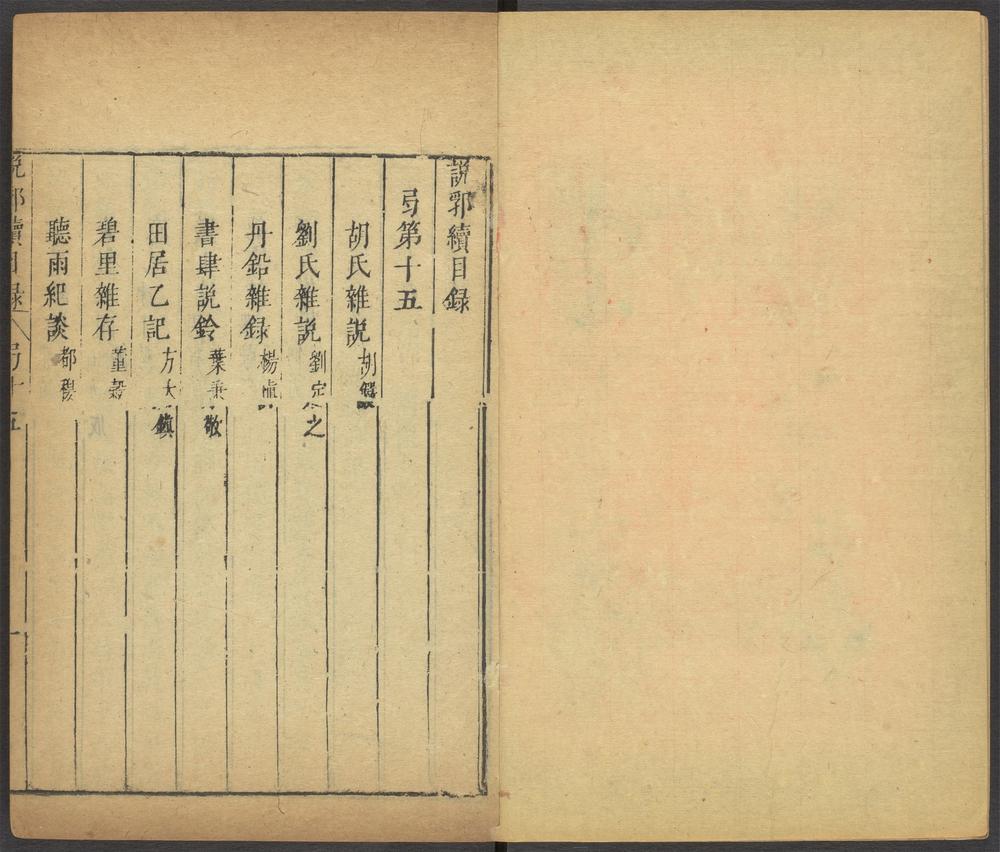 説郛續目録
弓第十五
胡氏雜説 胡儼
劉氏雜説 劉定之
丹鉛雜録 楊慎
書肆説鈴 葉秉敬
田居乙記 方大鎮
碧里雜存 董穀
聽雨紀談 都穆
説郛續目録 弓十五 一